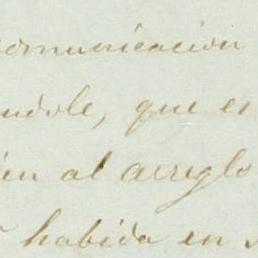 comunicacion
ndole, que en
ien al arreglo
habida en